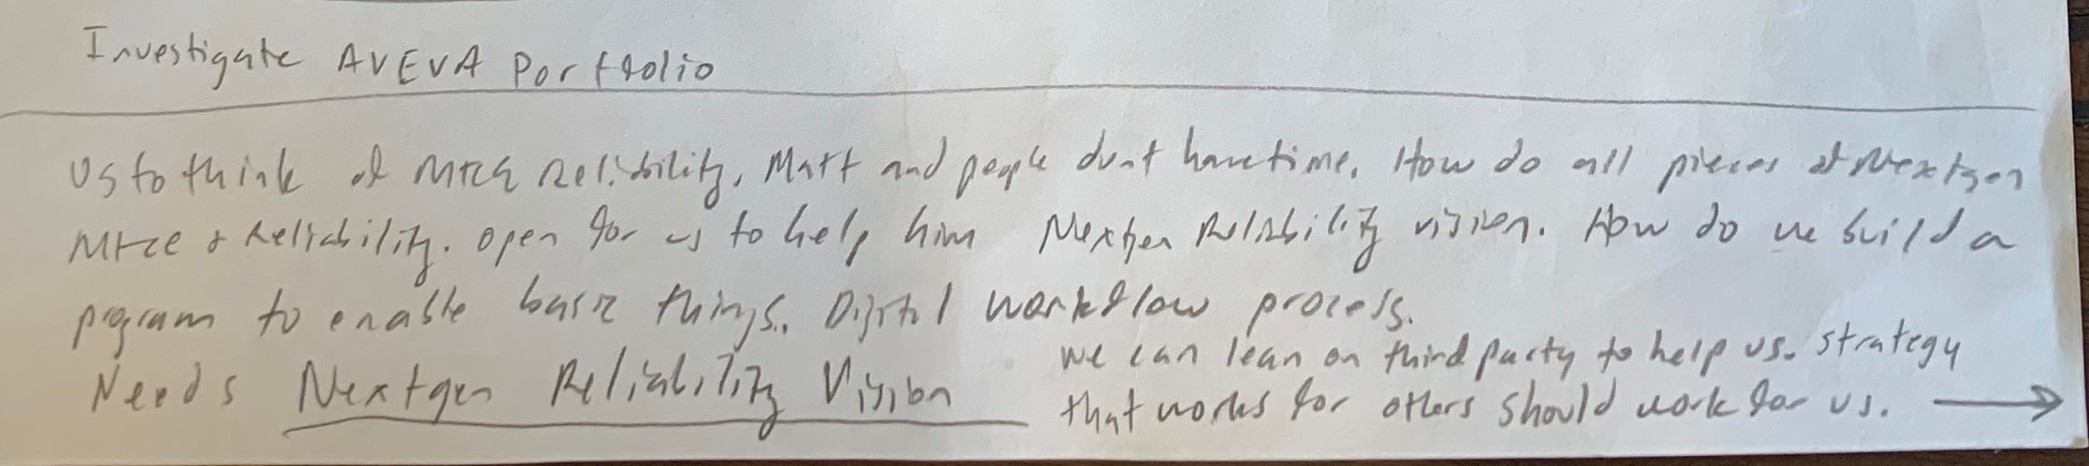 Investigate AVEVA Portfolio
us to think of Mtce Reliability, Matt and people dont have time. How do all pieces of Nextgen
Mtce & Reliability. open for us to help him Nextgen Reliability vision. How do we build a
program to enable basic things. Digital workflow process.
Needs Nextgen Reliability Vision
we can lean on third party to help us. strategy
that works for others should work for us. →